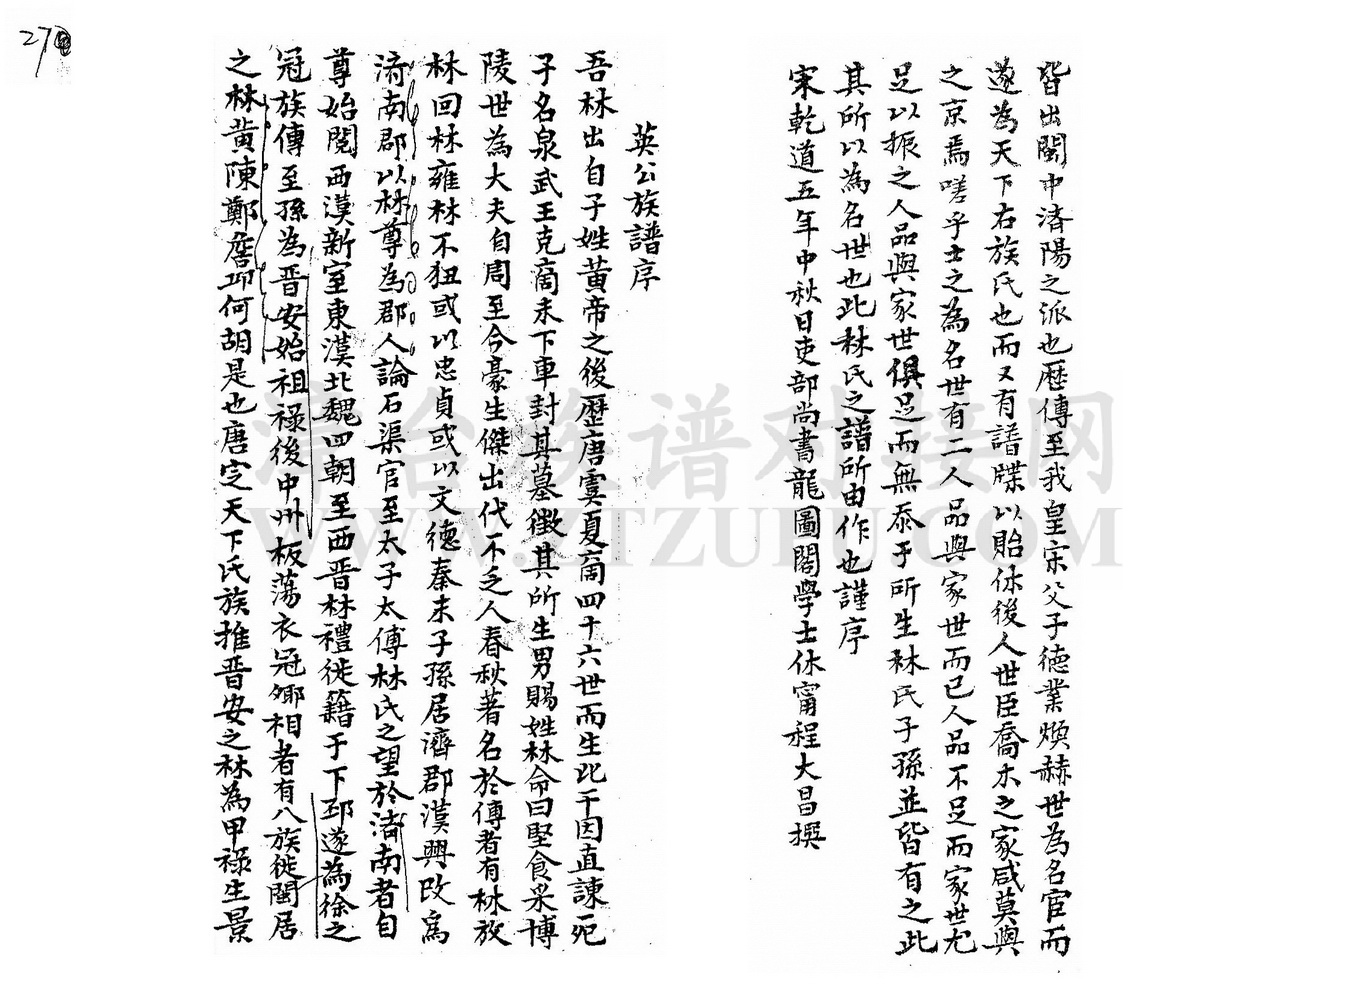 27
皆出閩中済陽之派也歴傳至我皇宋父子德業煥赫世為名宦而
遂為天下右族氏也而又有譜牒以貽休後人世臣喬木之家咸莫與
之京焉嗟乎士之為名世有二人品與家世而已人品不足而家世尤
足以振之人品與家世俱足而無忝于所生林氏子孫並皆有之此
其所以為名世也此林氏之譜所由作也謹序
宋乾道五年中秋日吏部尚書龍圖閣學士休甯程大昌撰
英公族譜序
吾林出自子姓黃帝之後歷唐虞夏商四十六世而生比干因直諫死
子名泉武王克商未下車封其墓徵其所生男賜姓林命曰堅食采博
陵世為大夫自周至今豪生傑出代不乏人春秋著名於傳者有林放
林回林雍林不狃或以忠貞或以文德秦末子孫居濟郡漢興改為
済南郡以林尊為郡人論石渠官至太子太傅林氏之望於済南者自
尊始閱西漢新室東漢北魏四朝至西晉林禮徙籍于下邳遂為徐之
冠族傳至孫為晉安始祖祿後中州板蕩衣冠卿相者有八族徙閩居
之林黃陳鄭詹邱何胡是也唐定天下氏族推晉安之林為甲祿生景
漳台族谱对接网
WWW.ZTZUPU.COM